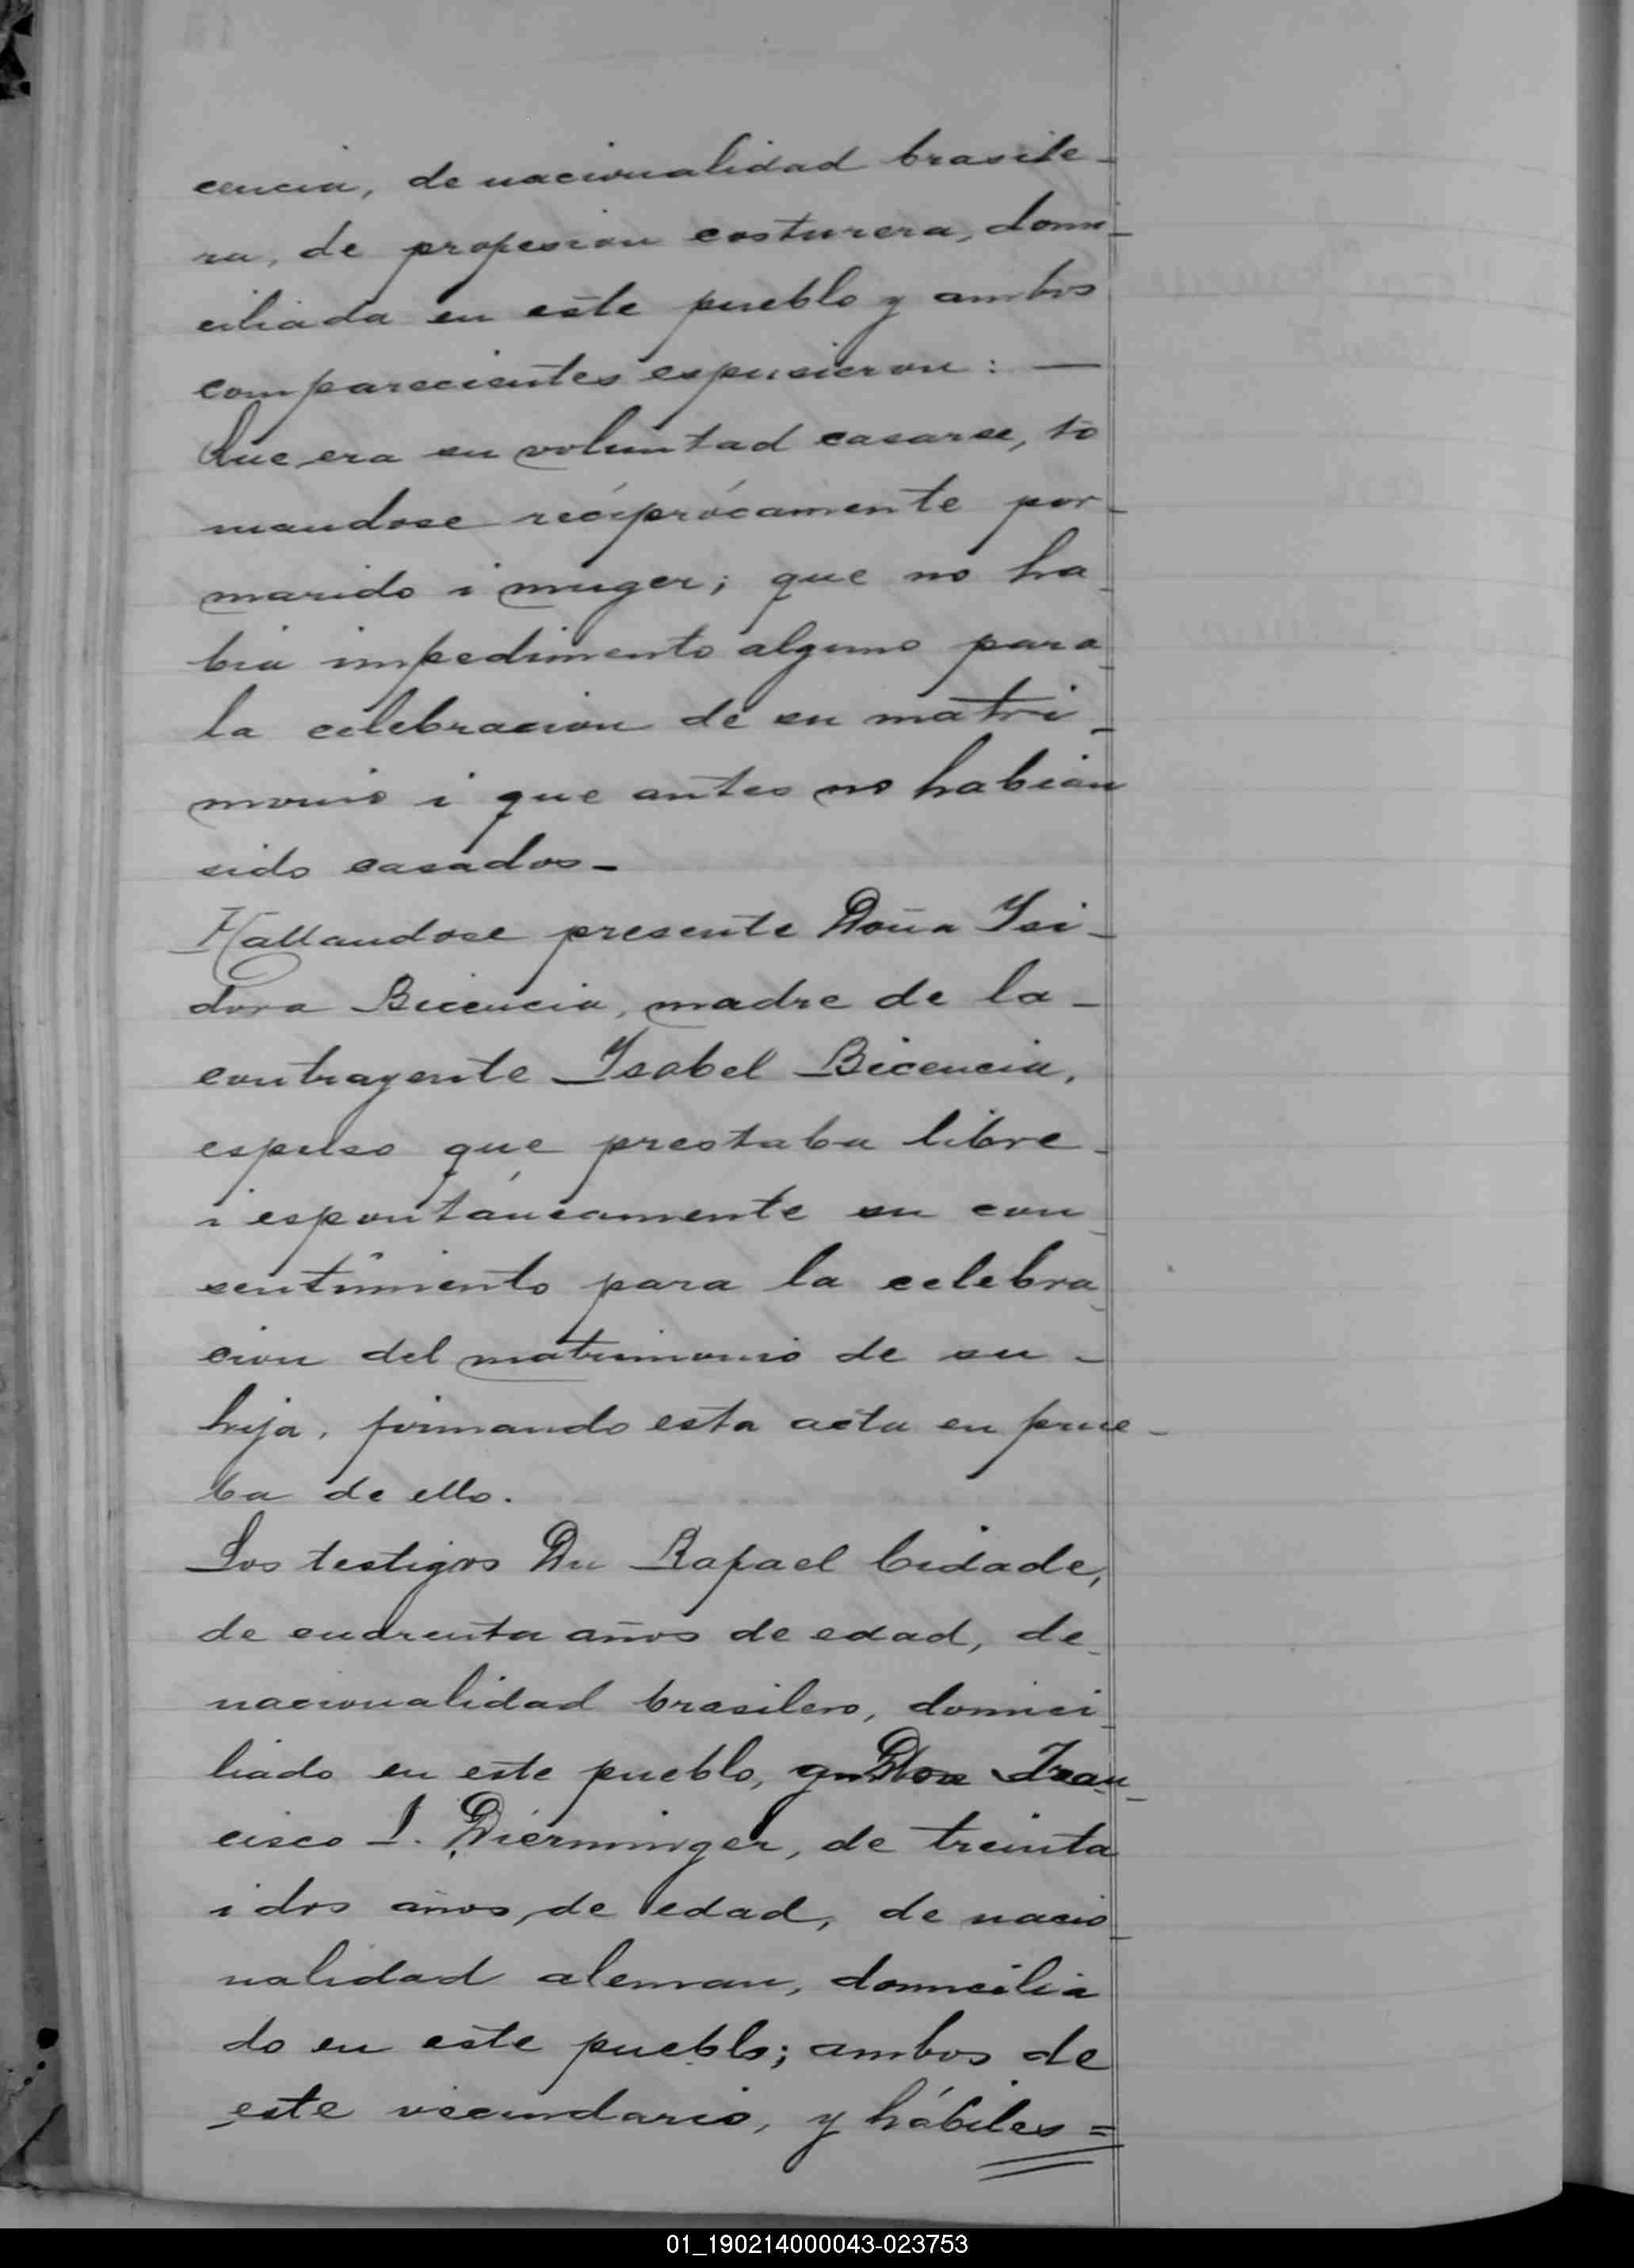 cencia, de nacionalidad brasile-
ra, de profesion costurera, domi-
ciliada en este pueblo y ambos
comparecientes espusieron: —
Que era su voluntad casarse, to
mandose recíprócamente por-
marido i muger; que no ha-
bia impedimento alguno para
la celebracion de su matri-
monio i que antes no habian
sido casados-
Hallandose presente Doña Isi-
dora Bicencia, madre de la-
contrayente Isabel Bicencia,
espuso que prestaba libre-
i espontáneamente su con-
sentimiento para la celebra-
cion del matrimonio de su-
hija, firmando esta acta en prue-
ba de ello.
Los testigos Dn Rafael Cidade,
de cuarenta años de edad, de-
nacionalidad brasilero, domici-
liado en este pueblo, y Don Fran-
cisco I. Dierminger, de treinta
i dos años, de edad, de nacio-
nalidad aleman, domicilia
do en este pueblo; ambos de
este vecindario, y hábiles=
01_190214000043-023753